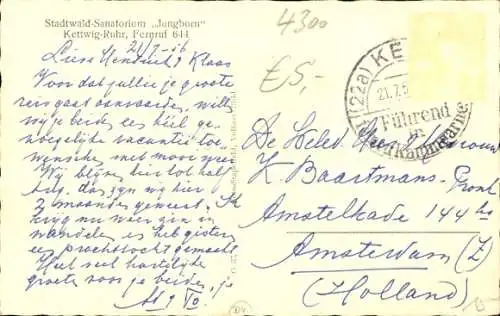 Stadtwald-Sanatorium „Jungborn"
Kettwig-Ruhr, Fernruf 644
4300
€5,-
21/7-56
Lieve Hendrik & Klaas
Voor dat jullie je groote
reis gaat aanvaarden, willen
wij je beiden een heel ge-
noegelijke vacantie toe
wenschen met mooi weer
Wij blijven hier tot half
Aug. dan zijn wij hier
2 maanden geweest. Ik
krijg nu weer zin in
wandelen en heb gisteren
een prachttocht gemaakt
Heel veel hartelijke
groeten voor je beiden, je
(22a) KE
21.7.5
Führend
in
De Weled. Heer
K. Baartmans-Pronk
Amstelkade 144 hs
Amsterdam (Z)
(Holland)